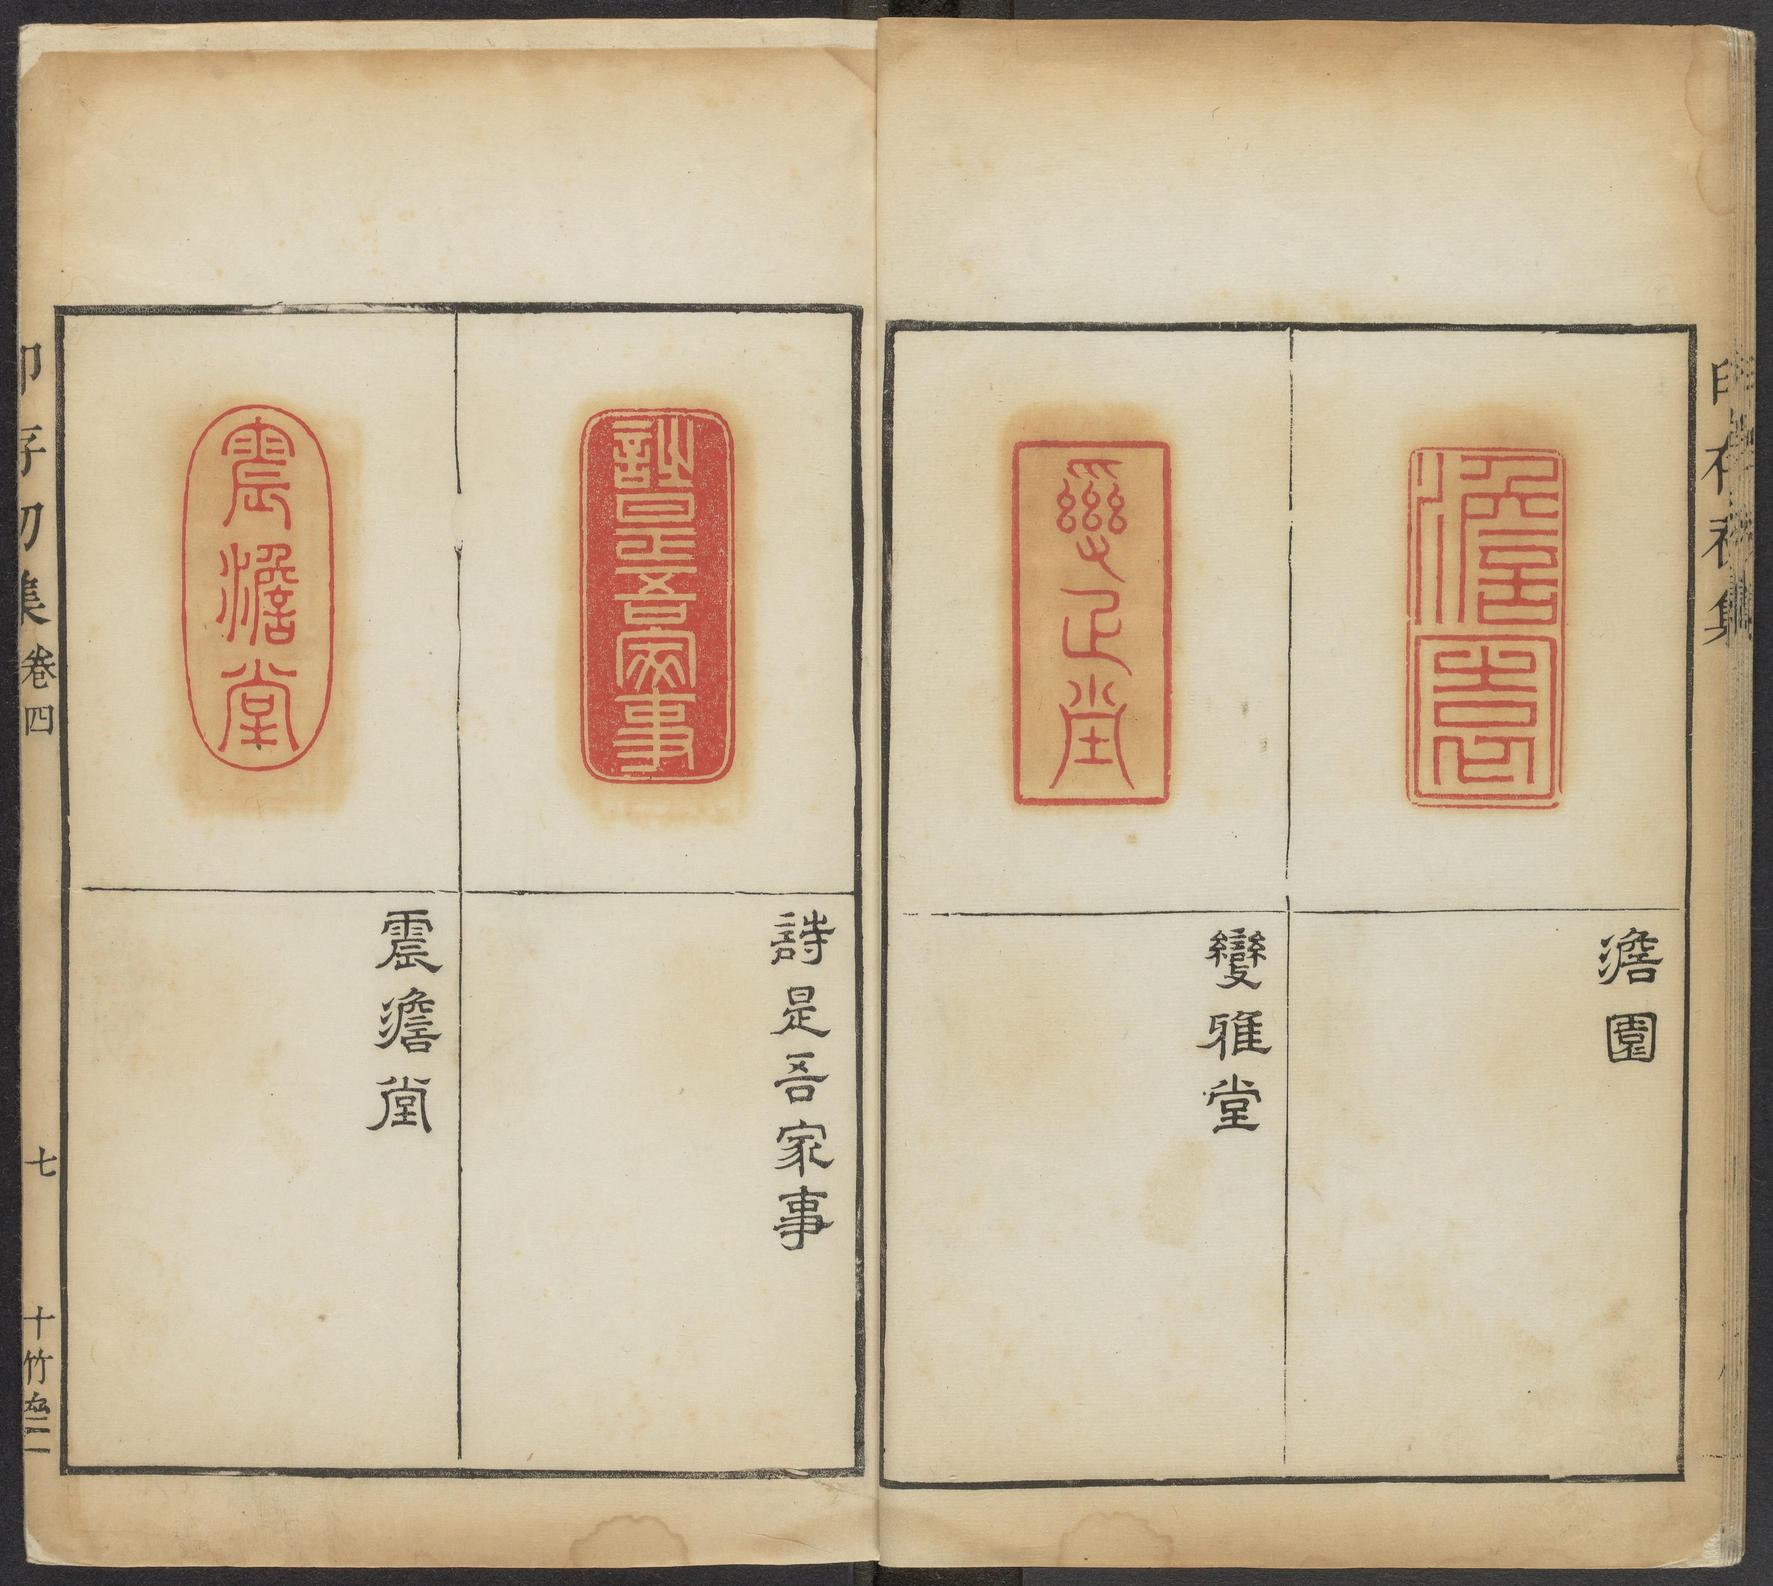 澹園
澹園
變雅堂
變雅堂
詩是吾家事
詩是吾家事
震澹堂
震澹堂
印存初集 卷四
七
十竹